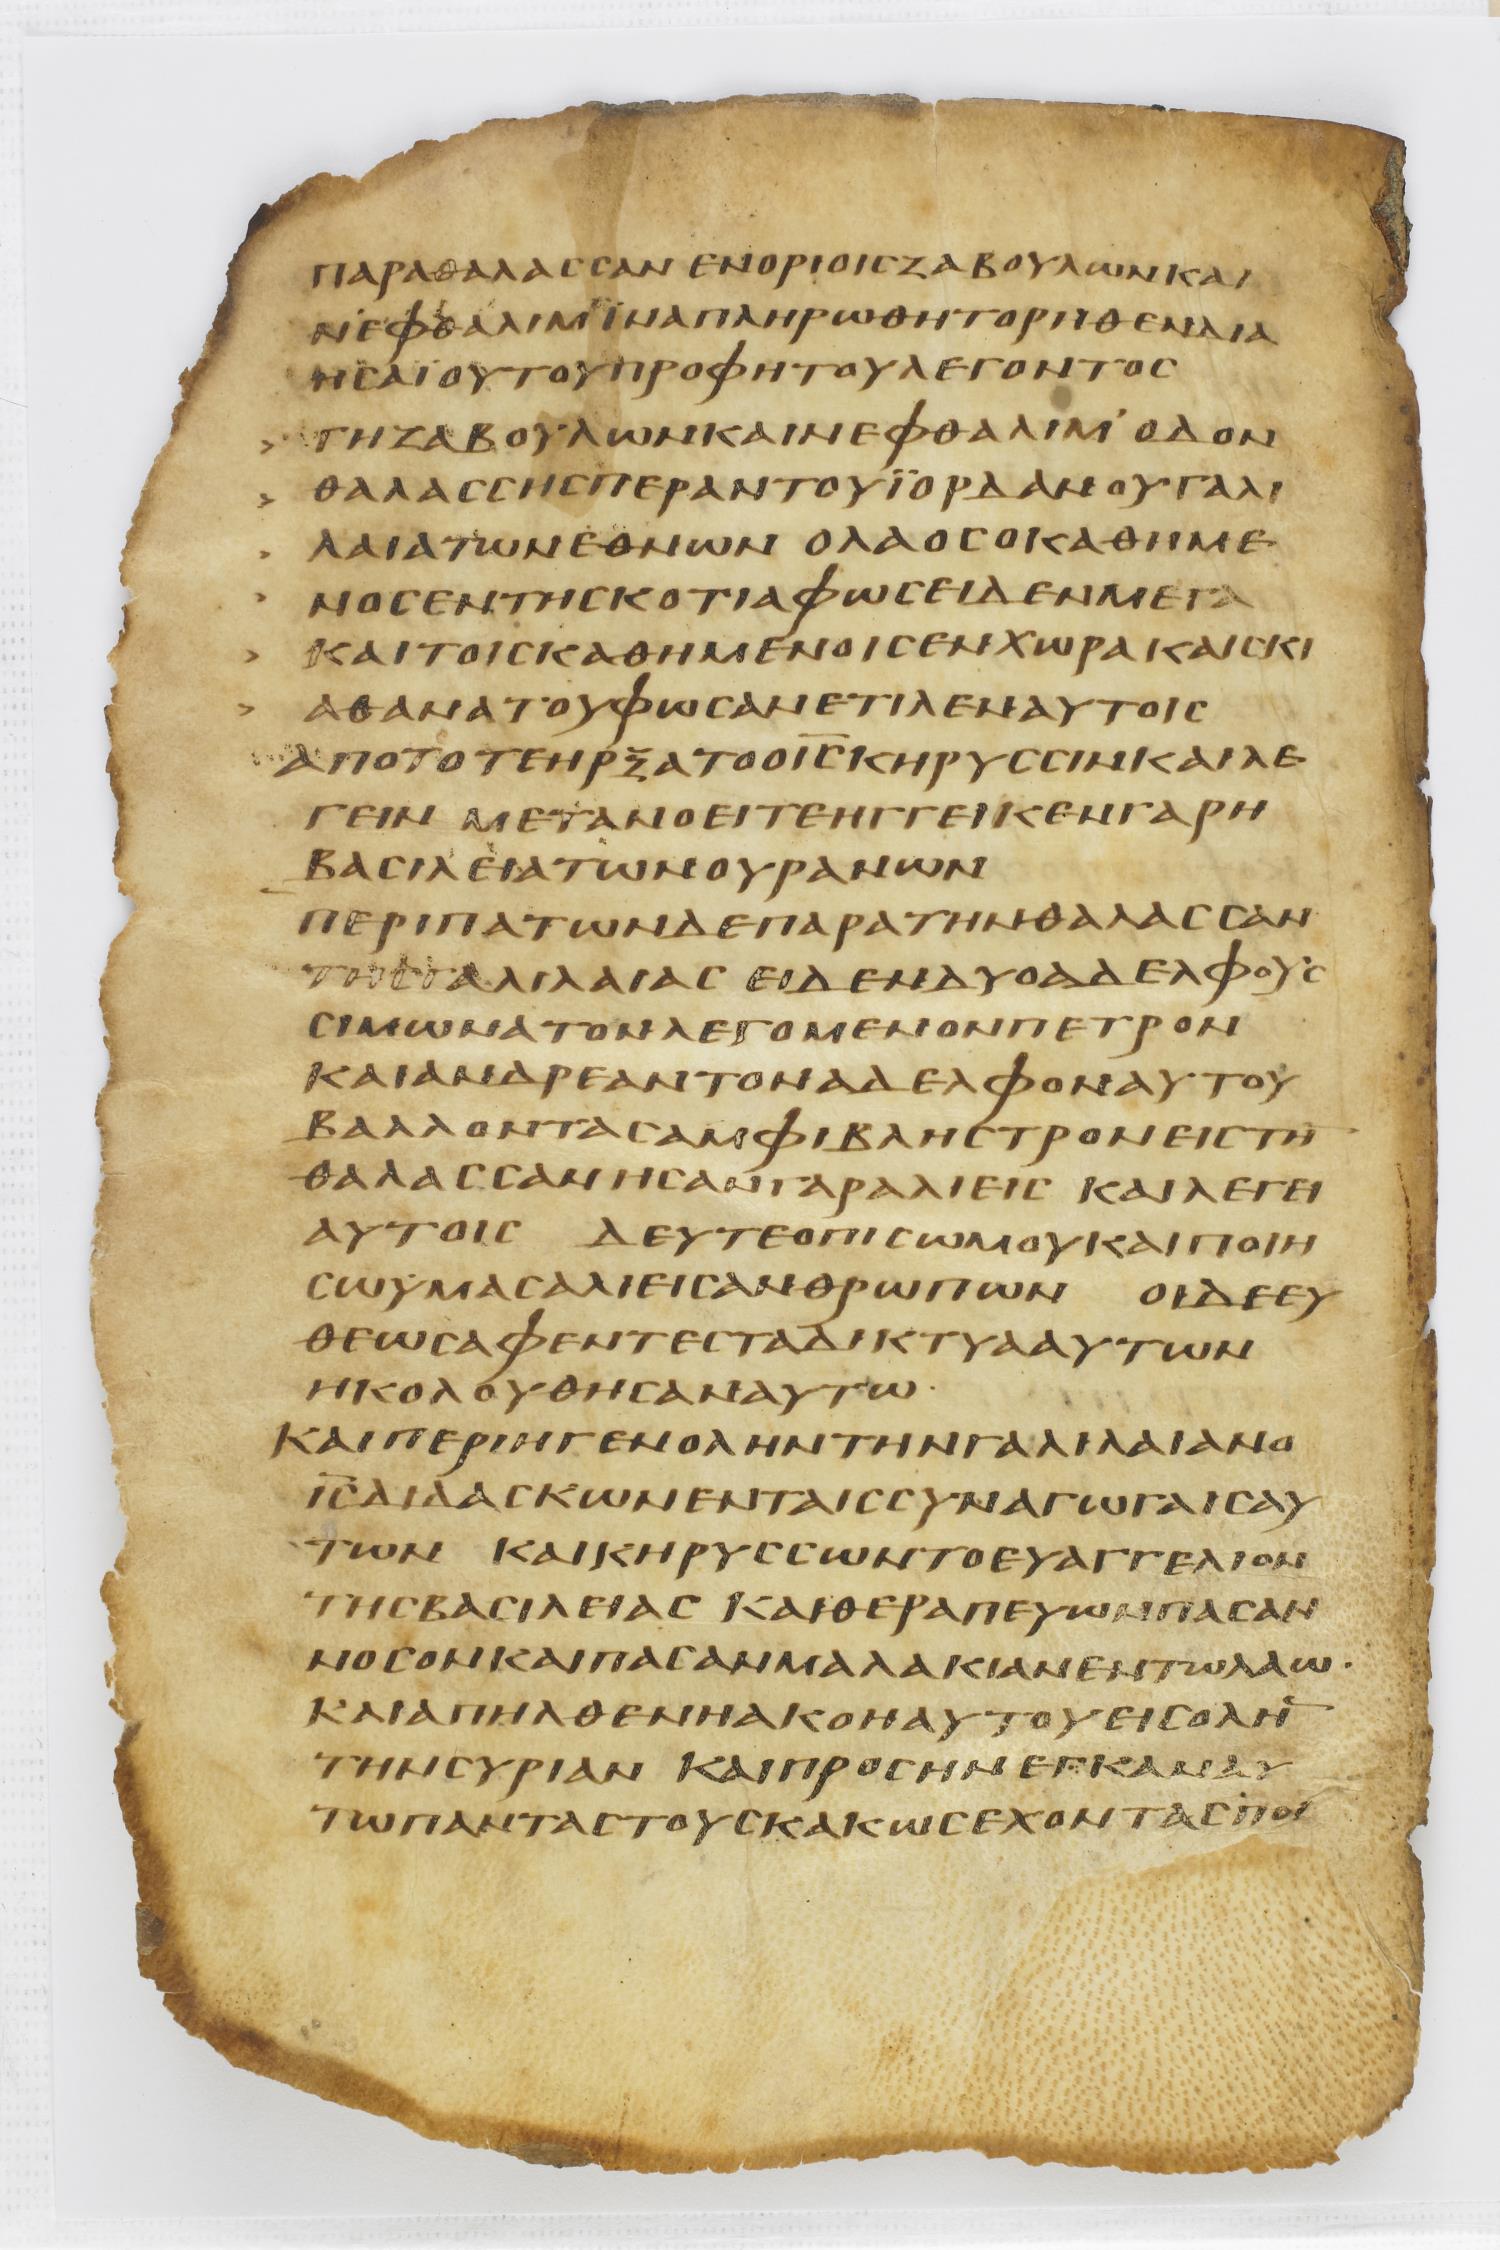 ΠΑΡΑΘΑΛΑССΑΝ ΕΝΟΡΙΟΙСΖΑΒΟΥΛΩΝΚΑΙ
ΝΕΦΘΑΛΙΜ̓ΪΝΑΠΛΗΡΩΘΗΤΟΡΗΘΕΝΔΙΑ
ΗСΑΪΟΥΤΟΥΠΡΟΦΗΤΟΥΛΕΓΟΝΤΟС
> ΓΗΖΑΒΟΥΛΩΝΚΑΙΝΕΦΘΑΛΙΜ̓ ΟΔΟΝ
> ΘΑΛΑССΗСΠΕΡΑΝΤΟΥΪΟΡΔΑΝΟΥΓΑΛΙ
> ΛΑΙΑΤΩΝΕΘΝΩΝ ΟΛΑΟСΟΚΑΘΗΜΕ
> ΝΟСΕΝΤΗСΚΟΤΙΑΦΩСΕΙΔΕΝΜΕΓΑ
> ΚΑΙΤΟΙСΚΑΘΗΜΕΝΟΙСΕΝΧΩΡΑΚΑΙСΚΙ
> ΑΘΑΝΑΤΟΥΦΩСΑΝΕΤΙΛΕΝΑΥΤΟΙС
ΑΠΟΤΟΤΕΗΡΞΑΤΟΟΙ̅С̅ΚΗΡΥССΙΝΚΑΙΛΕ
ΓΕΙΝ ΜΕΤΑΝΟΕΙΤΕΗΓΓΕΙΚΕΝΓΑΡΗ
ΒΑСΙΛΕΙΑΤΩΝΟΥΡΑΝΩΝ
ΠΕΡΙΠΑΤΩΝΔΕΠΑΡΑΤΗΝΘΑΛΑССΑΝ
ΤΗСΓΑΛΙΛΑΙΑС ΕΙΔΕΝΔΥΟΑΔΕΛΦΟΥС
СΙΜΩΝΑΤΟΝΛΕΓΟΜΕΝΟΝΠΕΤΡΟΝ
ΚΑΙΑΝΔΡΕΑΝΤΟΝΑΔΕΛΦΟΝΑΥΤΟΥ
ΒΑΛΛΟΝΤΑСΑΜΦΙΒΛΗСΤΡΟΝΕΙСΤΗ̅
ΘΑΛΑССΑΝΗСΑΝΓΑΡΑΛΙΕΙС ΚΑΙΛΕΓΕΙ
ΑΥΤΟΙС ΔΕΥΤΕΟΠΙСΩΜΟΥΚΑΙΠΟΙΗ
СΩΥΜΑСΑΛΙΕΙСΑΝΘΡΩΠΩΝ ΟΙΔΕΕΥ
ΘΕΩСΑΦΕΝΤΕСΤΑΔΙΚΤΥΑΑΥΤΩΝ
ΗΚΟΛΟΥΘΗСΑΝΑΥΤΩ·
ΚΑΙΠΕΡΙΗΓΕΝΟΛΗΝΤΗΝΓΑΛΙΛΑΙΑΝΟ
Ι̅С̅ΔΙΔΑСΚΩΝΕΝΤΑΙССΥΝΑΓΩΓΑΙСΑΥ
ΤΩΝ ΚΑΙΚΗΡΥССΩΝΤΟΕΥΑΓΓΕΛΙΟΝ
ΤΗСΒΑСΙΛΕΙΑС ΚΑΙΘΕΡΑΠΕΥΩΝΠΑСΑΝ
ΝΟСΟΝΚΑΙΠΑСΑΝΜΑΛΑΚΙΑΝΕΝΤΩΛΑΩ·
ΚΑΙΑΠΗΛΘΕΝΗΑΚΟΗΑΥΤΟΥΕΙСΟΛΗ̅
ΤΗΝСΥΡΙΑΝ ΚΑΙΠΡΟСΗΝΕΓΚΑΝΑΥ
ΤΩΠΑΝΤΑСΤΟΥСΚΑΚΩСΕΧΟΝΤΑСΠΟΙ